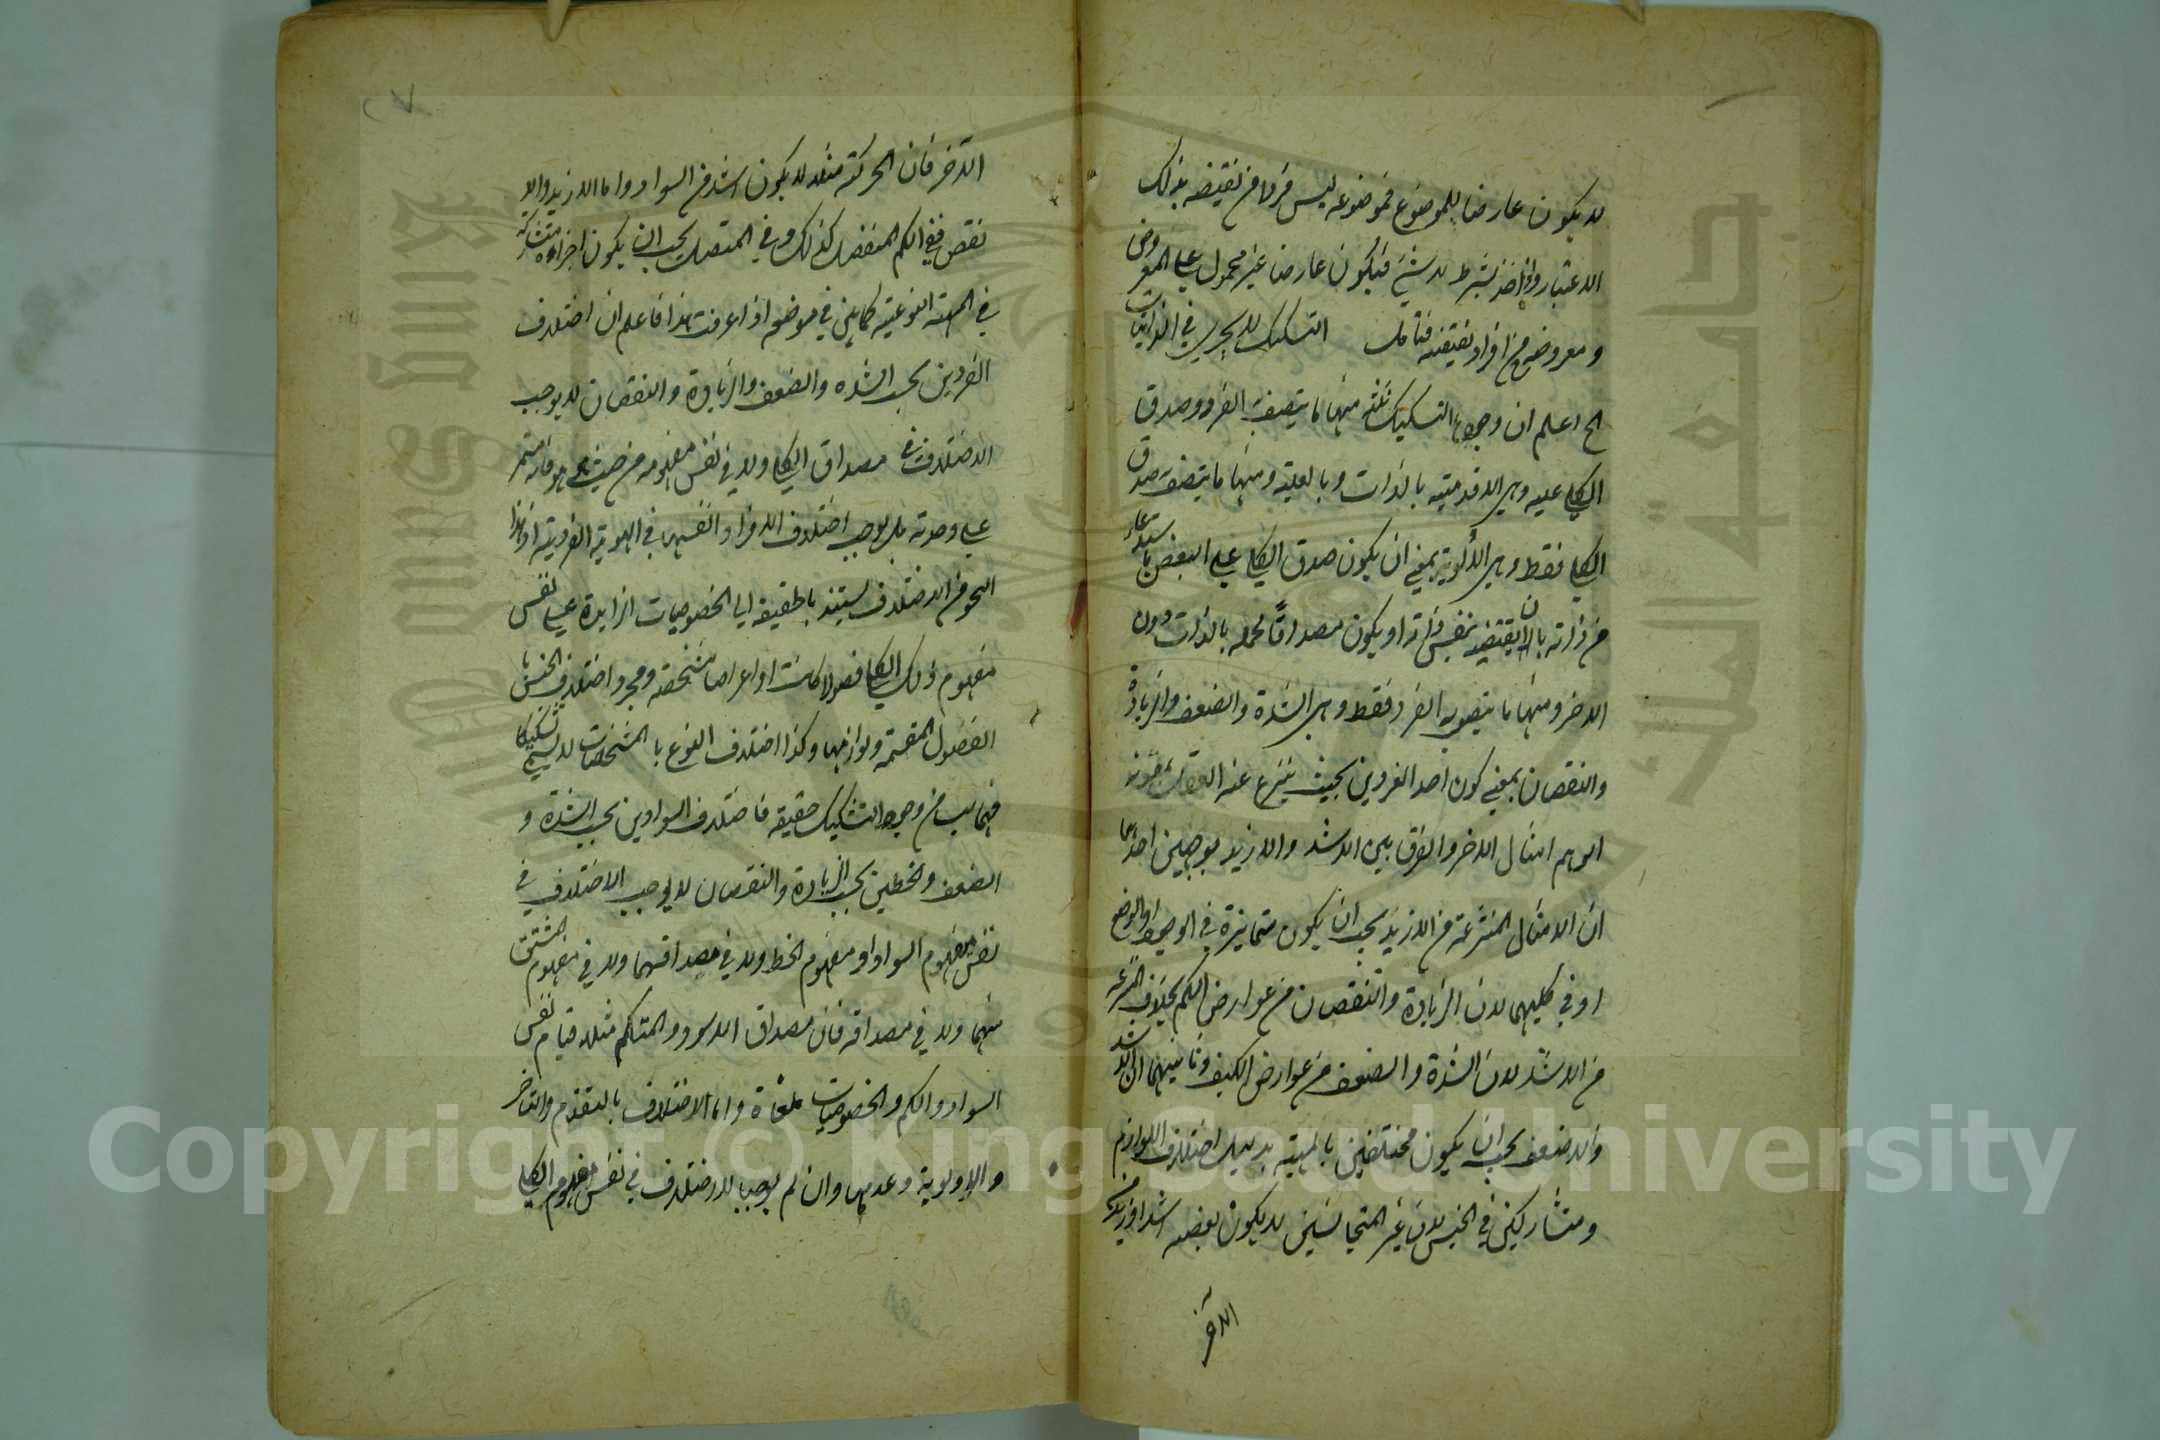 لا يكون عارضا للموضوع فموضوعه ليس فردا من نقيضه بذلك
الاعتبار واذا اخذ بشرط لا شيء فيكون عارضا غير محمول على المعروض
ومعروضه من افراد نقيضه فتأمل التشكيك لا يجري في الذاتيات
الخ اعلم ان وجوه التشكيك ثلثة منها ما يتصف به الفرد وصدق
الكلي عليه وهي الاقدمية بالذات وبالعلية ومنها ما يتصف به صدق
الكلي فقط وهي الاولوية بمعنى ان يكون صدق الكلي على البعض باستدعاء
من ذاته بالان يقتضيه بنفس ذاته او يكون مصداقا لحمله بالذات دون
الاخر ومنها ما يتصف به الفرد فقط وهي الشدة والضعف والزيادة
والنقصان بمعنى كون احد الفردين بحيث ينتزع عنه العقل بمعونة
الوهم امثال الاخر والفرق بين الاشد والازيد بوجهين احدهما
ان الامثال المنتزعة من الازيد يجب ان يكون متمايزة في الوجود او الوضع
او في كليهما لان الزيادة والنقصان من عوارض الكم بخلاف المنتزعة
من الاشد لان الشدة والضعف من عوارض الكيف وثانيهما ان الاشد
والاضعف يجب ان يكون مختلفين بالمهية بدليل اختلاف اللوازم
ومتشاركين في الجنس لان غير المتجانسين لا يكون بعضه اشد او ازيد من
الآخر
الآخر فان الحركة مثلا لا يكون اشد من السواد واما الازيد والا
نقص ففي الكم المنفصل كذلك وفي المتصل يجب ان يكون اجزاؤه متشاركة
في المهية النوعية كما بين في موضعه اذا عرفت هذا فاعلم ان اختلاف
الفردين بحسب الشدة والضعف والزيادة والنقصان لا يوجب
الاختلاف في مصداق الكلي ولا في نفس مفهومه من حيث هو هو فانه مستمر
على وحدته بل يوجب اختلاف الافراد انفسها في الهوية الفردية اذ هذا
النحو من الاختلاف يستند بالحقيقة الى الخصوصيات الزايدة على نفس
مفهوم ذلك الكلي فصولا كانت او اعراضا مشخصة ومجرد اختلاف الجنس با
لفصول المقسمة ولوازمها وكذا اختلاف النوع بالمشخصات لا يسمى تشكيكا
فهما ليسا من وجوه التشكيك حقيقة فاختلاف السوادين بحسب الشدة و
الضعف والخطين بحسب الزيادة والنقصان لا يوجب الاختلاف في
نفس مفهوم السواد او مفهوم الخط ولا في مصداقهما ولا في مفهوم المشتق
منهما ولا في مصداقه فان مصداق الاسود والمتكمم مثلا قيام نفس
السواد والكم والخصوصيات ملغاة واما الاختلاف بالتقدم والتاخر
والاولوية وعدمها وان لم يوجبا الاختلاف في نفس مفهوم الكلي
Copyright © King Saud University
King Saud University
جامعة الملك سعود